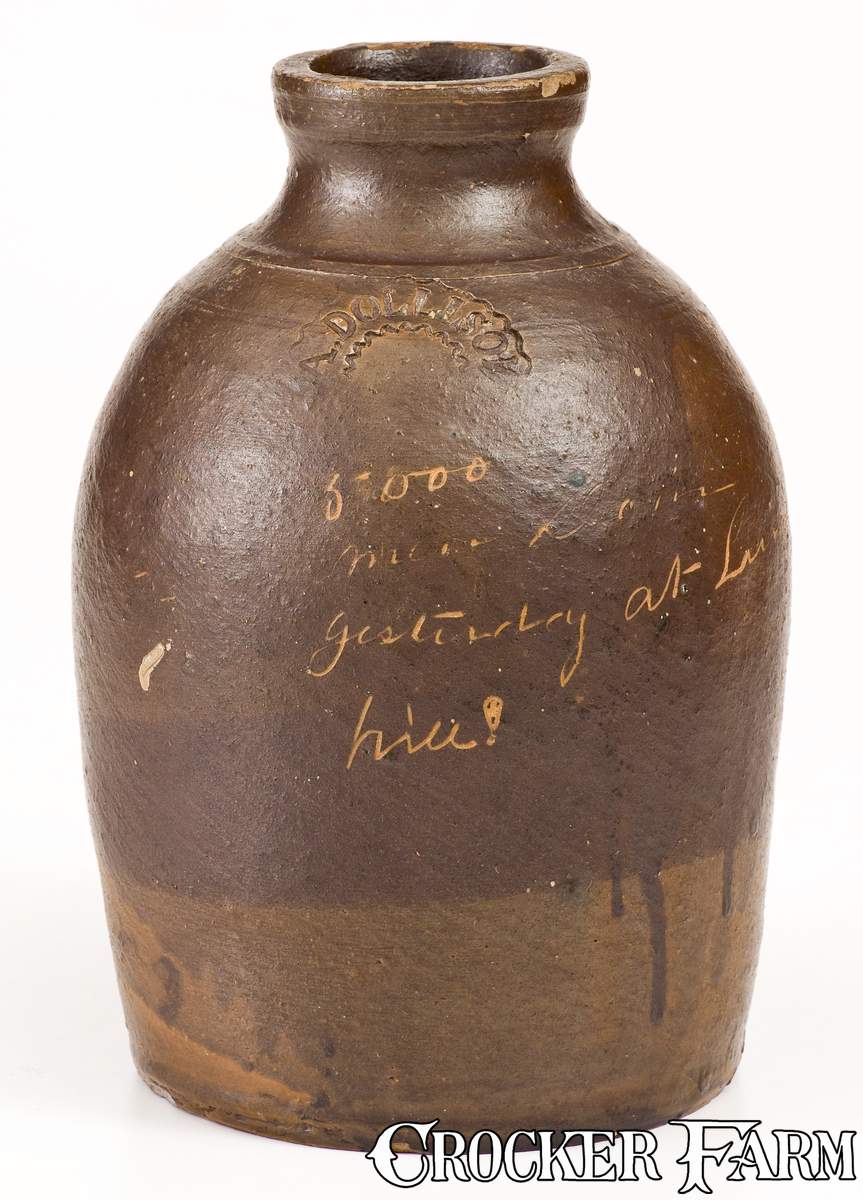 A. DOLLISON
5000
men
yesterday at
hill!
CROCKER FARM